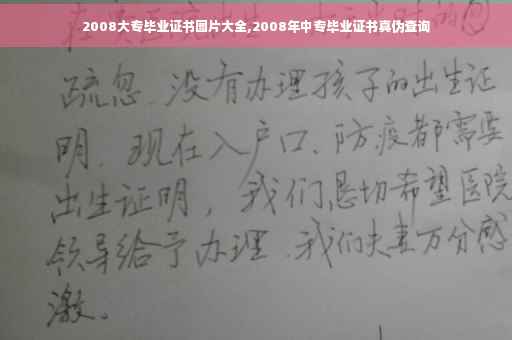 2008大专毕业证书图片大全,2008年中专毕业证书真伪查询
疏忽、没有办理孩子的出生证
明、现在入户口、防疫都需要
出生证明，我们恳切希望医院
领导给予办理、我们夫妻万分感
激。